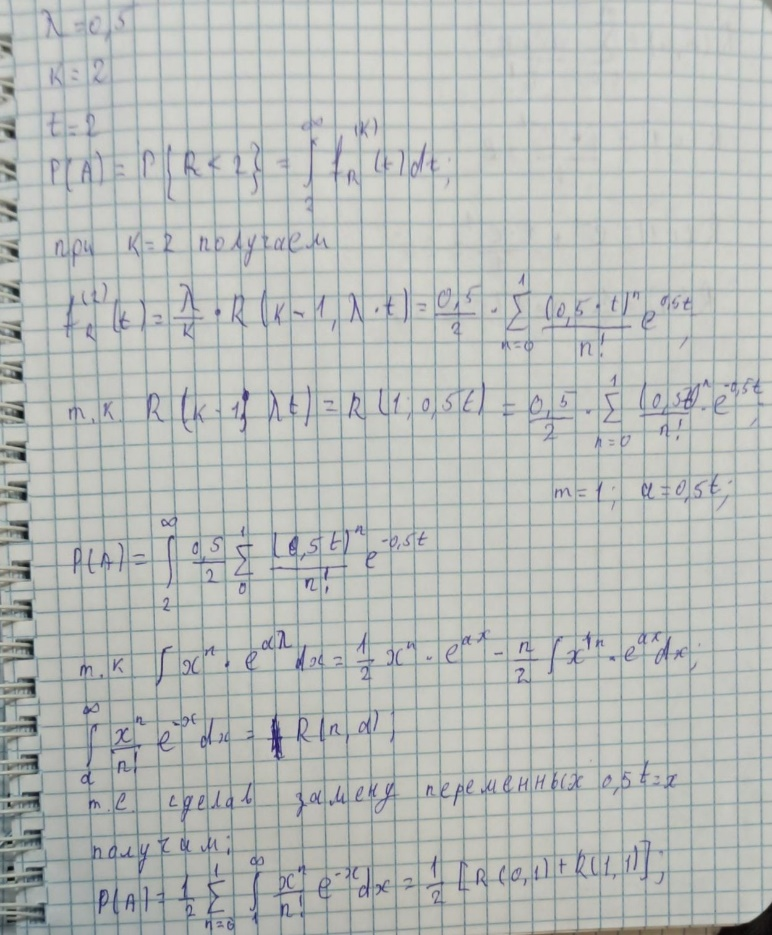 λ = 0,5
к = 2
t = 2
P(A) = P{R < 2} = ∫₂^∞ f_R^(к)(t)dt;
при к=2 получаем
f_R^(2)(t) = λ/к · R(к-1, λ·t) = 0,5/2 · Σ_{n=0}^1 (0,5·t)^n/n! e^{0,5t};
т.к. R(к-1; λt) = R(1; 0,5t) = 0,5/2 · Σ_{n=0}^1 (0,5t)^n/n! · e^{-0,5t};
m = 1; a = 0,5t;
P(A) = ∫₂^∞ 0,5/2 Σ_0^1 (0,5t)^n/n! e^{-0,5t}
т.к. ∫ x^n · e^{αλ} dx = 1/2 x^n · e^{ax} - n/2 ∫ x^{1n} · e^{ax} dx;
∫_a^∞ x^n/n! e^{-x} dx = R(n, a);
т.е. сделав замену переменных 0,5t=x
получам;
P(A) = 1/2 Σ_{n=0}^1 ∫_1^∞ x^n/n! e^{-x} dx = 1/2 [R(0,1) + R(1,1)];